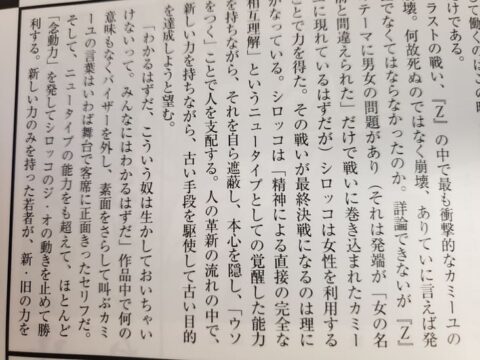 で働くのはこの時
けである。
ラストの戦い、『Z』の中で最も衝撃的なカミーユの
壊。何故死ぬのではなく崩壊、ありていに言えば発
でなくてはならなかったのか。詳論できないが『Z』
テーマに男女の問題があり（それは発端が「女の名
前と間違えられた」だけで戦いに巻き込まれたカミー
に現れているはずだが）シロッコは女性を利用する
ことで力を得た。その戦いが最終決戦になるのは理に
がなっている。シロッコは「精神による直接の完全な
相互理解」というニュータイプとしての覚醒した能力
を持ちながら、それを自ら遮蔽し、本心を隠し、「ウソ
をつく」ことで人を支配する。人の革新の流れの中で、
新しい力を持ちながら、古い手段を駆使して古い目的
を達成しようと望む。
「わかるはずだ、こういう奴は生かしておいちゃい
けないって。みんなにはわかるはずだ」作品中で何の
意味もなくバイザーを外し、素面をさらして叫ぶカミ
ーユの言葉はいわば舞台で客席に正面きったセリフだ。
そして、ニュータイプの能力をも超えて、ほとんど
「念動力」を発してシロッコのジ・オの動きを止めて勝
利する。新しい力のみを持った若者が、新・旧の力を